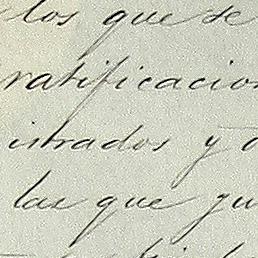 los que se
ratificacion
istrados y
las que